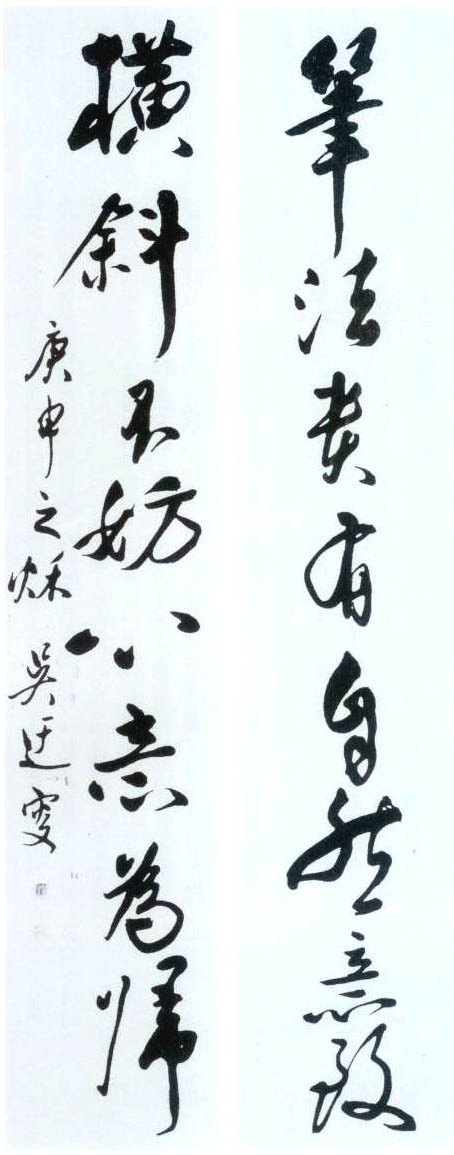 筆法貴有自然意致
橫斜不妨以意為歸
庚申之秌 吳廷雯